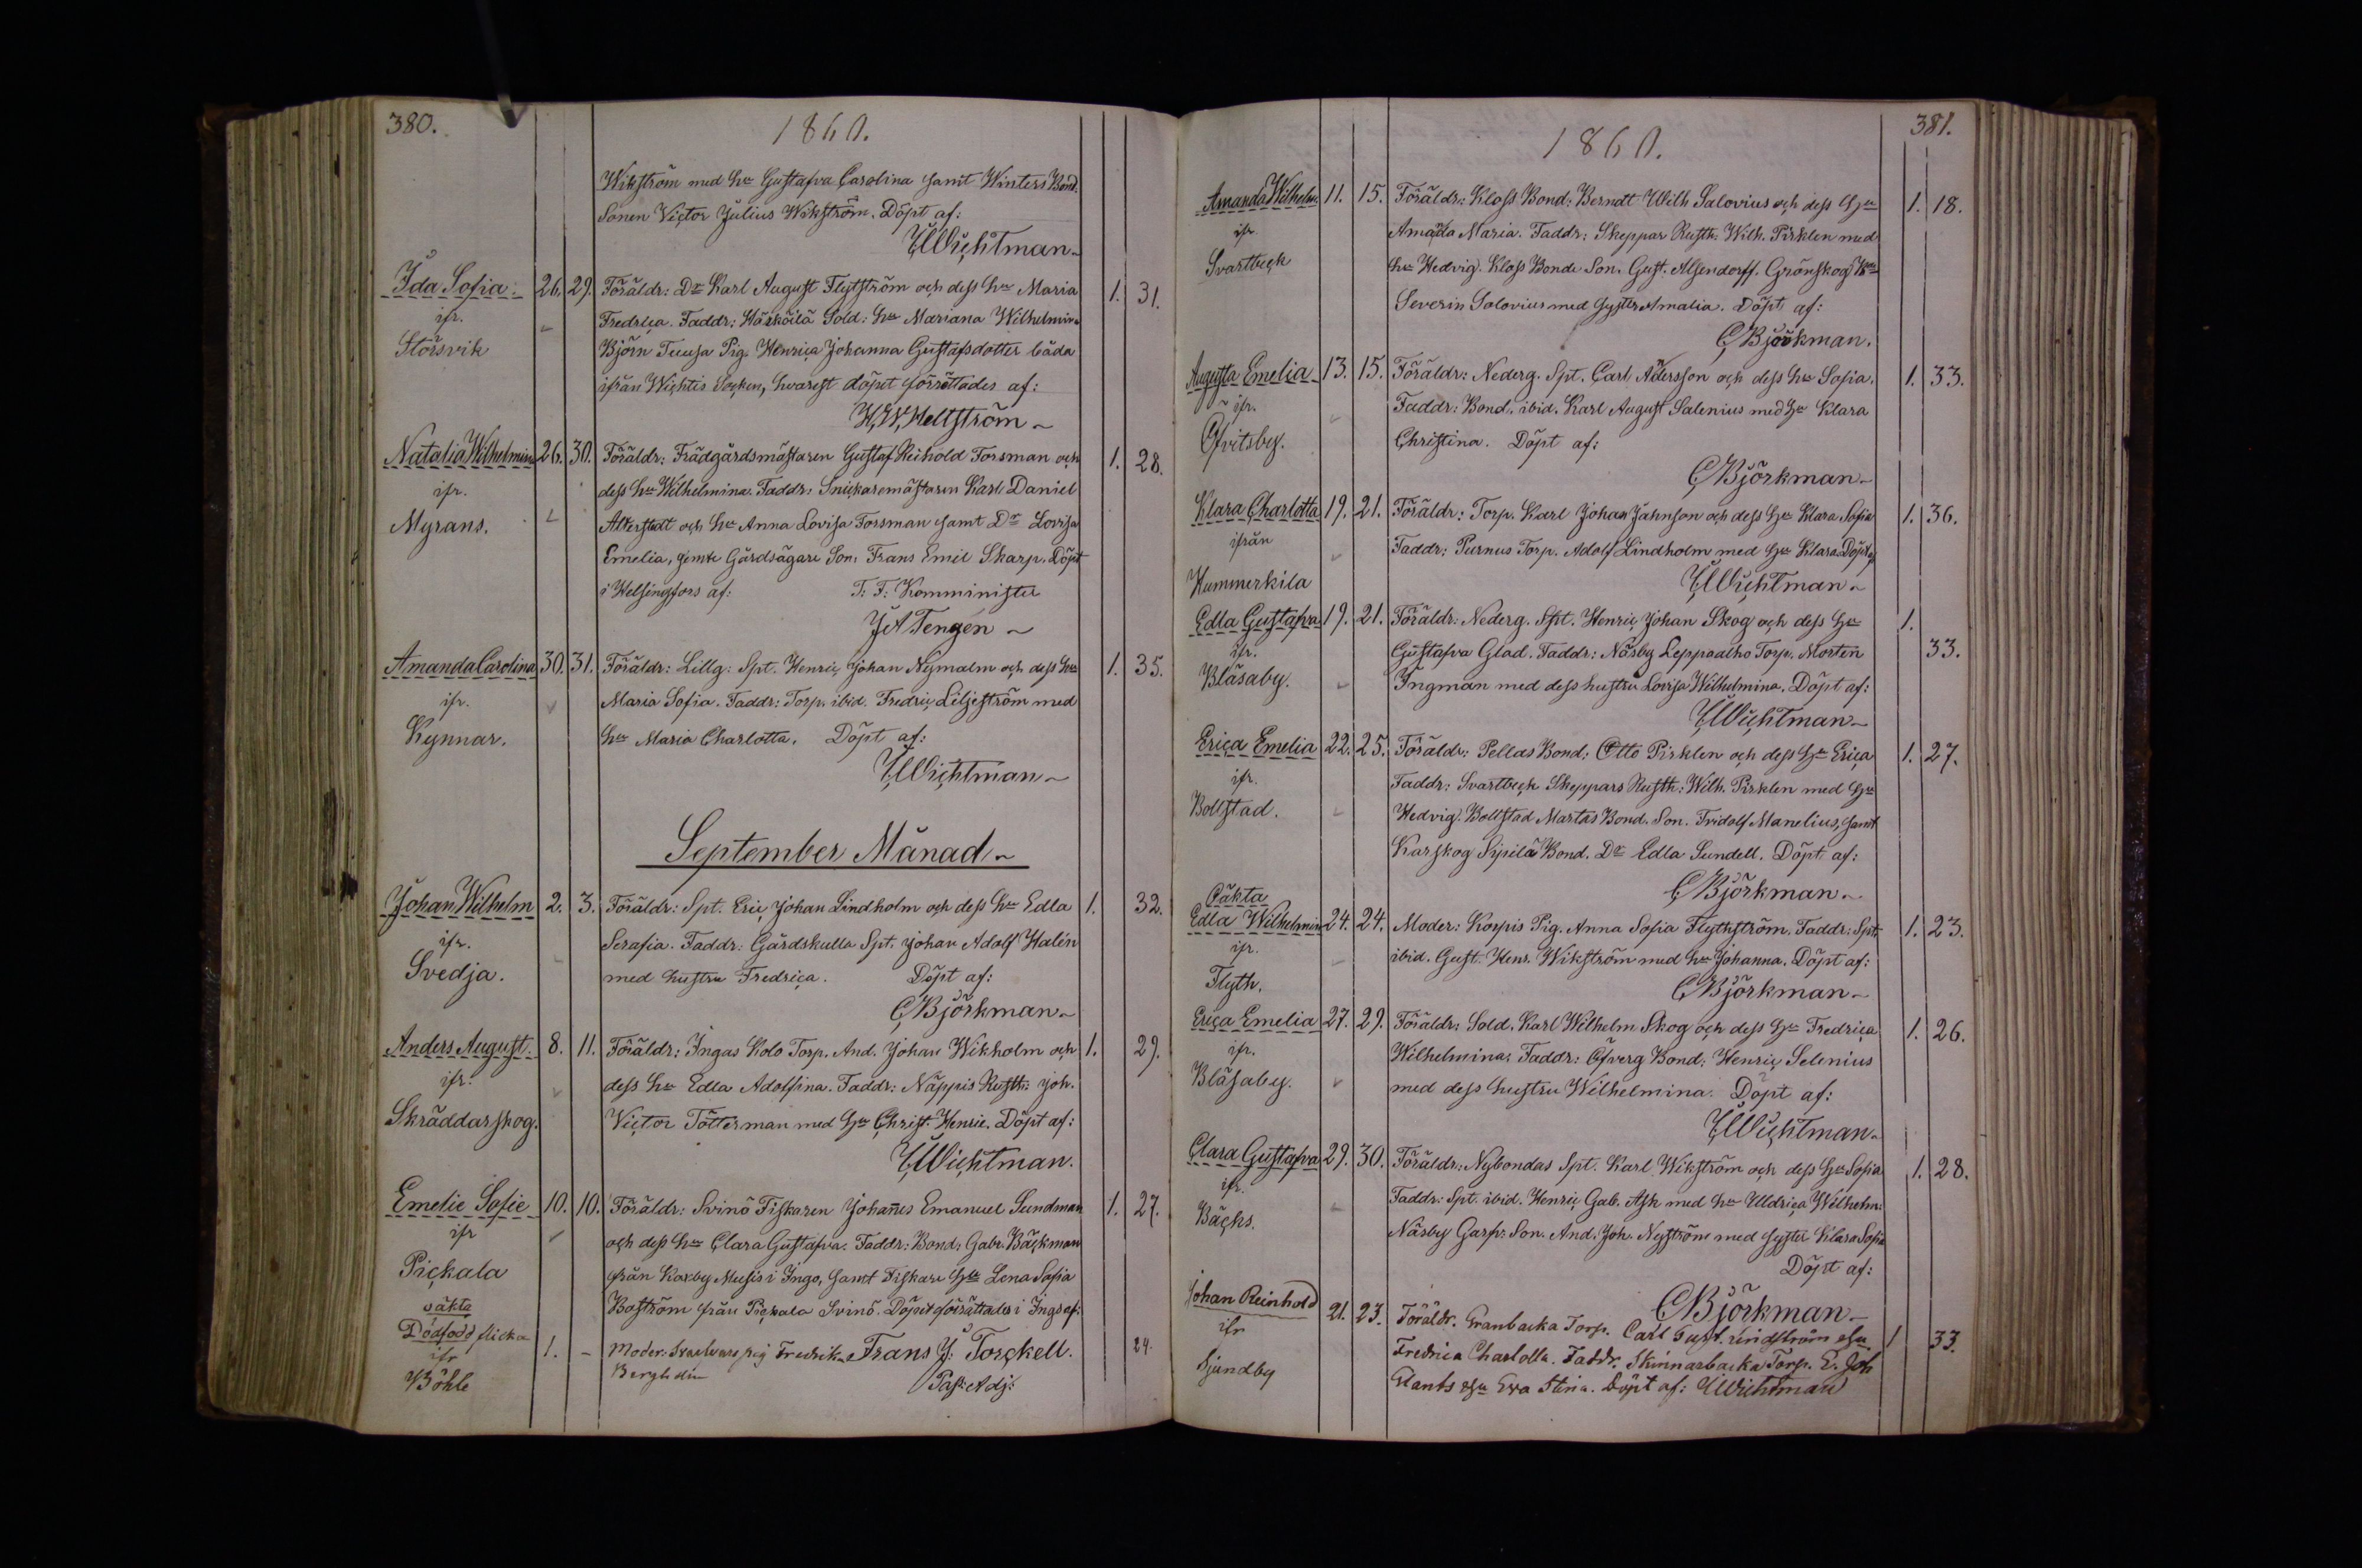 380.
1860.
Wikström med Hu Gustafva Carolina samt Winters Bond.
Sonen Victor Julius Wikström. Döpt af:
Wichtman
Ida Sofia 26. 29. Föräldr: Dr Karl August Flytström och dess Hu Maria 1. 31.
ifr. Fredrica. Faddr: Härköilä Sold: Hu Mariana Wilhelmina
Störsvik Björn Tuusa Pig. Henrica Johanna Gustafsdotter båda
ifrån Wichtis Socken, hvarest döpet förrättades af:
Hellström
Natalia Wilhelmin 26. 30. Föräldr: Trädgårdsmästaren Gustaf Reihold Forsman och 1. 28.
ifr. dess Hu Wilhelmina. Faddr: Snickaremästaren Karl Daniel
Myrans. Alterstadt och Hu Anna Lovisa Forsman samt Dr Lovisa
Emelia, jemte Gårdsägare Son, Frans Emil Skarp. Döpt
i Helsingfors af: T: F: Komminister
JA Tengén
Amanda Carolina 30. 31. Föräldr: Lillg: Spt. Henric Johan Nymalm och dess Hu 1. 35.
ifr. Maria Sofia. Faddr: Torp. ibid. Fredric Liljeström med
Kynnar. Hu Maria Charlotta. Döpt af:
Wichtman
September Månad
Johan Wilhelm 2. 3. Föräldr: Spt. Eric Johan Lindholm och dess Hu Edla 1. 32.
ifr. Serafia. Faddr: Gårdskulla Spt. Johan Adolf Halén
Svedja. med hustru Fredrica. Döpt af:
CBjörkman
Anders August. 8. 11. Föräldr: Ingas Kolo Torp. And. Johan Wikholm och 1. 29.
ifr. dess Hu Edla Adolfina. Faddr: Näppis Rusth: Joh.
Skräddarskog. Victor Tötterman med Hu Christ. Henric. Döpt af:
Wichtman.
Emelie Sofie 10. 10. Föräldr: Svinö Fiskaren Johañes Emanuel Sundman 1. 27.
ifr och dess Hu Clara Gustafva. Faddr: Bond: Gabr. Bäckman
Pickala från Kaxby Musis i Ingo, samt Fiskare Hu Lena Sofia
Boström från Pickala Svinö. Döpet förrättades i Ingo af:
oäkta
Dödfödd flicka 1. - Moder: pig Fredrika Frans J. Torckell. 24.
ifr Berglidin Past: Adj:
Böhle
381.
1860.
Amanda Wilhelm. 11. 15. Föräldr: Kloss Bond: Berndt Wilh Salovius och dess Hu 1. 18.
ifr. Amada Maria. Faddr: Skeppar Rusth: Wilh. Pirklen med
Svartbeck Hu Hedvig. Kloss Bonde Son. Gust. Alsendorff. Grönskog
Severin Solovius med Syster Amalia. Döpt af:
CBjörkman.
Augusta Emelia 13. 15. Föräldr: Nederg. Spt. Carl Andersson och dess Hu Sofia. 1. 33.
ifr. Faddr: Bond. ibid. Karl August Salenius med Hu Klara
Öfvitsby. Christina. Döpt af:
CBjörkman
Klara Charlotta 19. 21. Föräldr: Torp. Karl Johan Jahnson och dess Hu Klara Sofia 1. 36.
ifrån Faddr: Purnus Torp. Adolf Lindholm med Hu Klara. Döpt af
Hummerkila Wichtman
Edla Gustafva 19. 21. Föräldr: Nederg. Spt. Henric Johan Skog och dess Hu 1. 33.
ifr. Gustafva Glad. Faddr: Näsby Leppaalho Torp. Morten
Blåsaby. Ingman med dess hustru Lovisa Wilhelmina. Döpt af:
Wichtman
Erica Emelia 22. 25. Föräldr: Pellas Bond: Otto Pirklen och dess Hu Erica 1. 27.
ifr. Faddr: Svartbeck Skeppars Rusth: Wilh. Pirklen med Hu
Bollstad. Hedvig. Bollstad Martas Bond. Son. Fridolf Manelius, samt
Karskog Sipilä Bond. Dr Edla Sundell. Döpt af:
CBjörkman
Oäkta
Edla Wilhelmin 24. 24. Moder: Korpis Pig. Anna Sofia Flythström. Faddr: Spt. 1. 23.
ifr. ibid. Gust. Henr. Wikström med Hu Johanna. Döpt af:
Flyth. CBjörkman
Erica Emelia 27. 29. Föräldr: Sold. Karl Wilhelm Skog och dess Hu Fredrica 1. 26.
ifr. Wilhelmina. Faddr: Öfverg Bond: Henric Selenius
Blåsaby. med dess hustru Wilhelmina. Döpt af:
Wichtman
Clara Gustafva 29. 30. Föräldr: Nybondas Spt. Karl Wikström och dess Hu Sofia 1. 28.
ifr. Faddr: Spt. ibid. Henric Gab. Ask med Hu Uldrica Wilhelm:
Bäcks. Näsby Garfv. Son. And. Joh. Nyström med Syster Klara Sofia
Döpt af:
CBjörkman
Johan Reinhold 21. 23. Föräldr. Granbacka Torp. Carl Gust. Lindström o Hu 1 33.
ifr Fredrica Charlotta. Faddr. Skinnarbacka Torp. E. Joh
Sjundby Glants o Hu Eva Stina. Döpt af: Wichtman